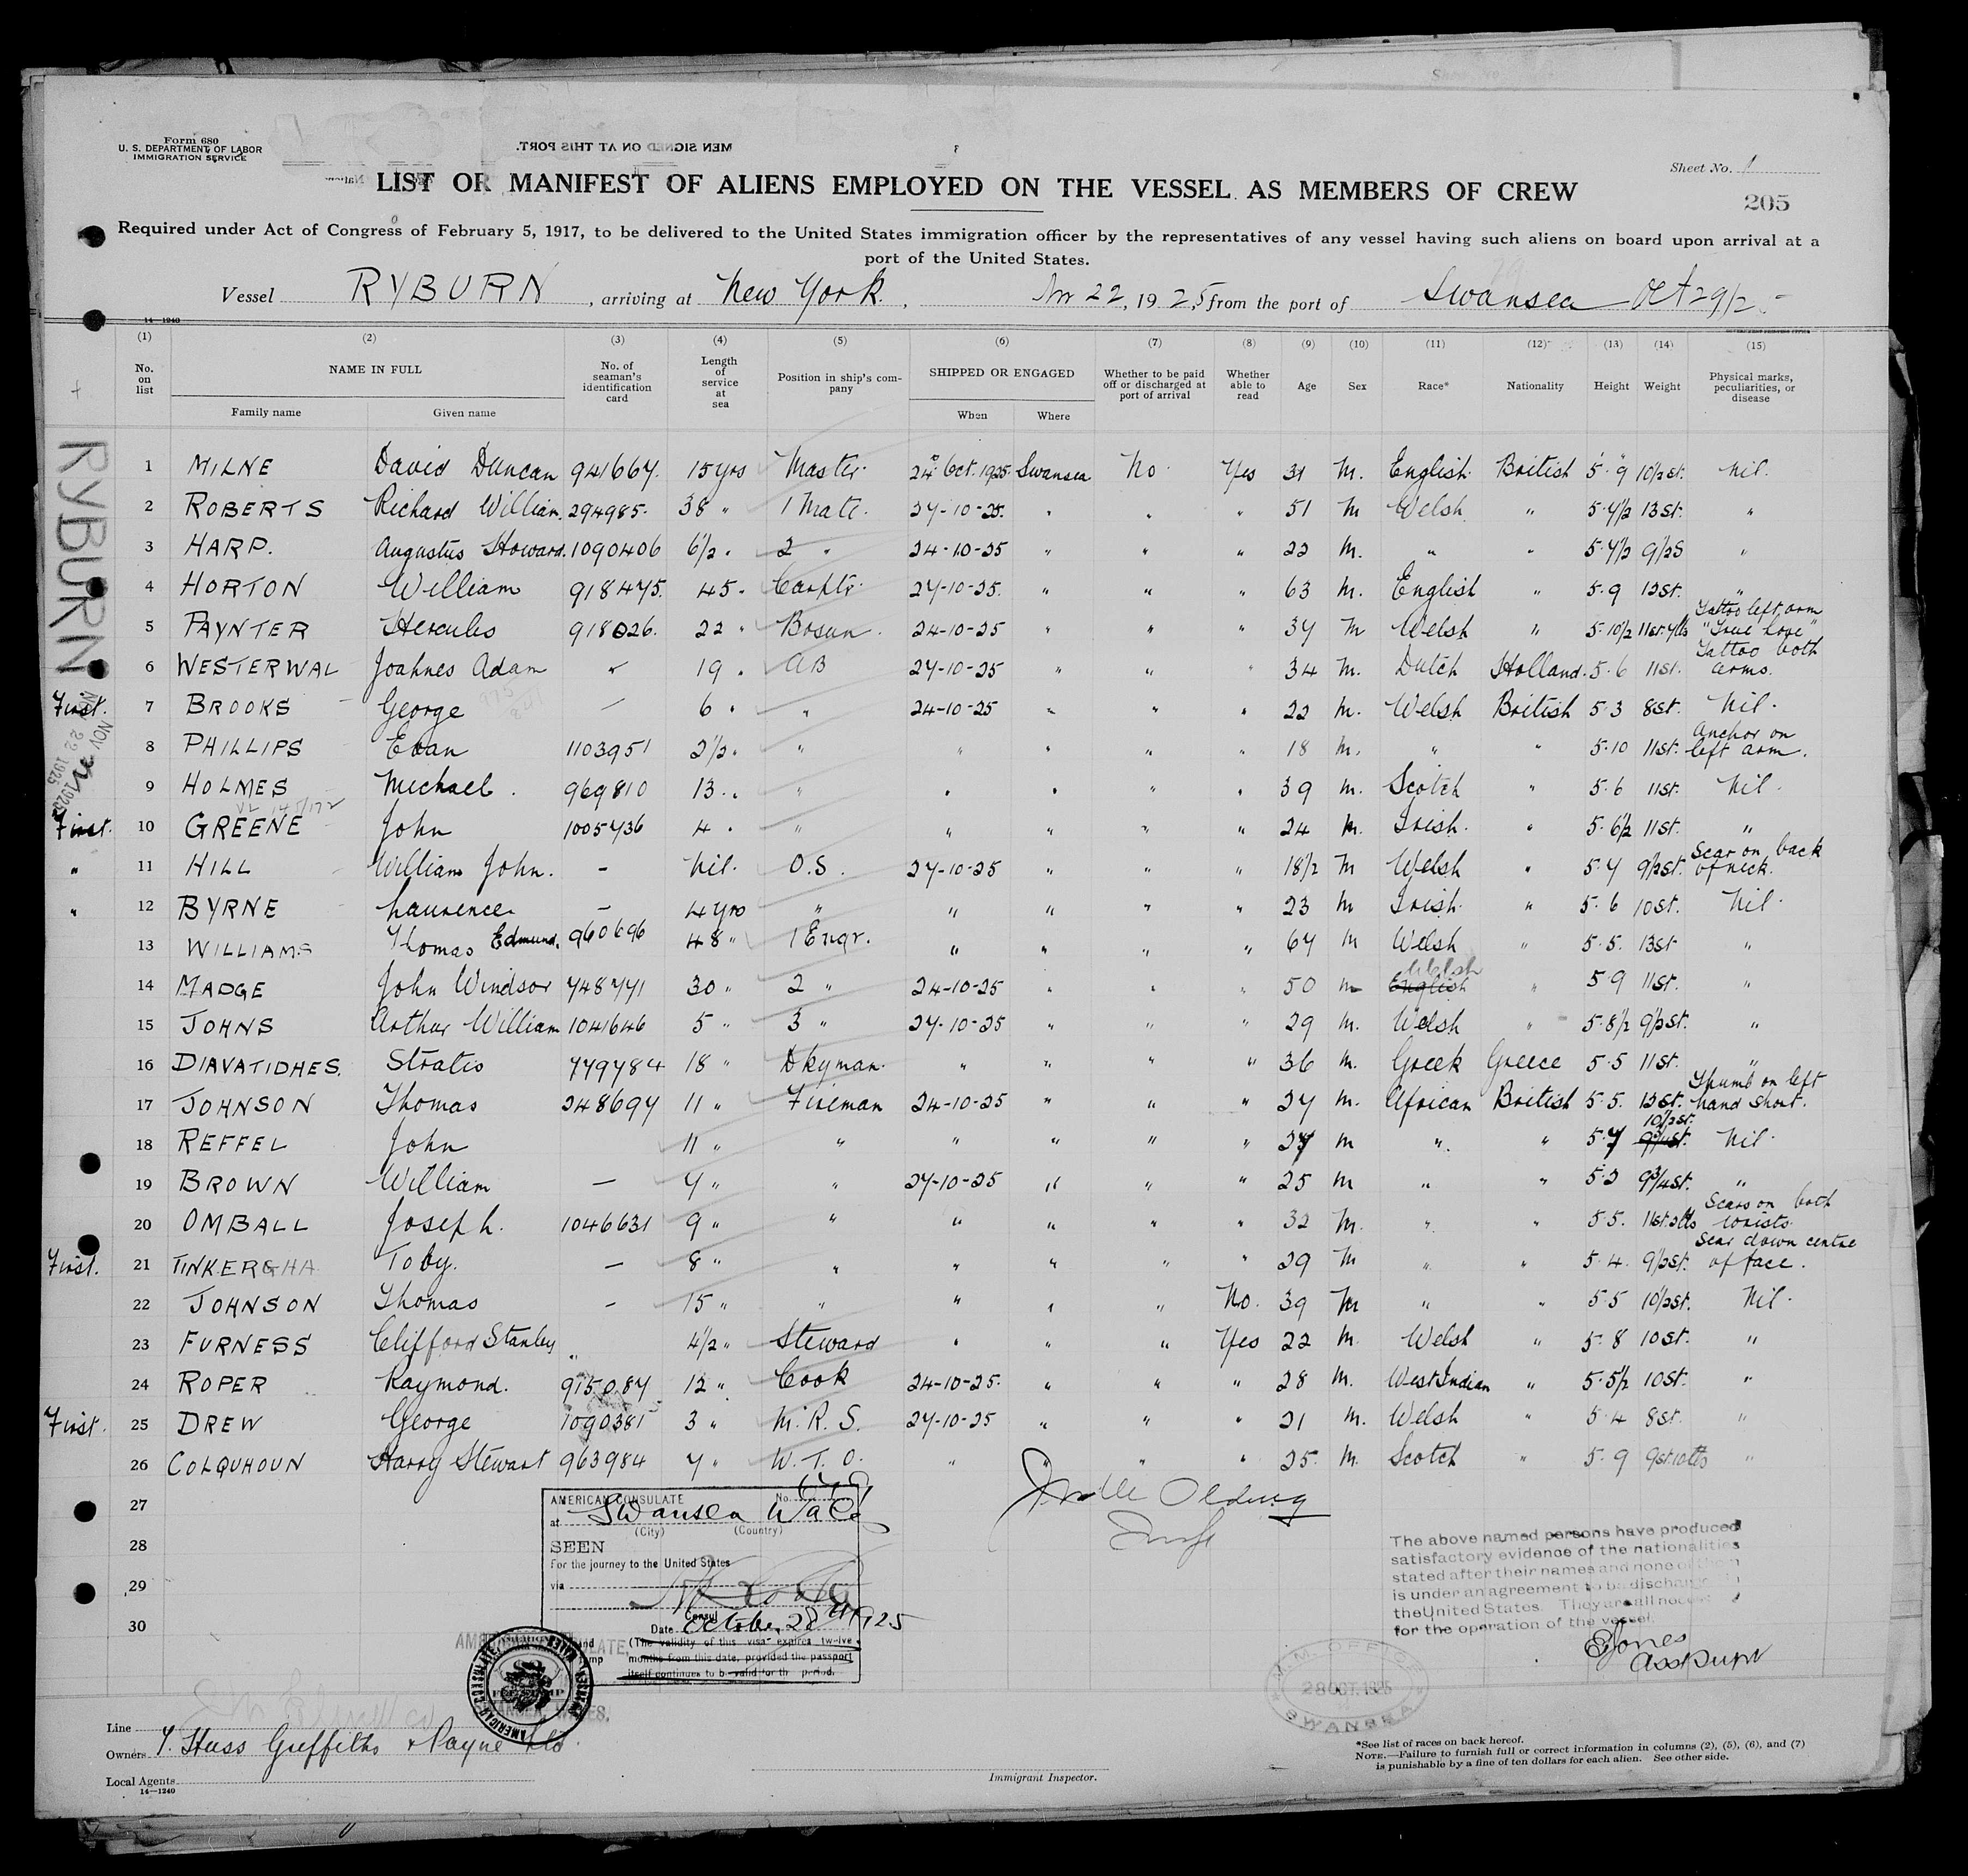 Form 680
U. S. DEPARTMENT OF LABOR
IMMIGRATION SERVICE
MEN SIGNED ON AT THIS PORT.
Sheet No. 1
LIST OR MANIFEST OF ALIENS EMPLOYED ON THE VESSEL AS MEMBERS OF CREW
205
Required under Act of Congress of February 5, 1917, to be delivered to the United States immigration officer by the representatives of any vessel having such aliens on board upon arrival at a
port of the United States.
Vessel RYBURN, arriving at New York, Nov 22, 1925, from the port of Swansea Oct 29/25
14—1240
(1) (2) (3) (4) (5) (6) (7) (8) (9) (10) (11) (12) (13) (14) (15)
No. on list NAME IN FULL Family name Given name No. of seaman's identification card Length of service at sea Position in ship's company SHIPPED OR ENGAGED When Where Whether to be paid off or discharged at port of arrival Whether able to read Age Sex Race* Nationality Height Weight Physical marks, peculiarities, or disease
RYBURN
NOV 22 1925
1 MILNE David Duncan 941667. 15 yrs Master. 24th Oct. 1925. Swansea No. Yes 31 M. English. British 5' 9" 10½ st. Nil.
2 ROBERTS Richard William. 294985. 38 " 1 Mate. 27-10-25. " " " 51 M Welsh " 5.7½ 13 st. "
3 HARP. Augustus Howard. 1090406 6½ " 2 " 24-10-25 " " " 22 M. " " 5.7½ 9½ S "
4 HORTON William 918475. 45 " Carptr. 27-10-25. " " " 63 M. English " 5.9 12st. "
5 PAYNTER Hercules 918026. 22 " Bosun. 24-10-25 " " " 37 M Welsh " 5.10½ 11st.7lbs Tattoo left arm "True Love"
6 WESTERWAL Joahnes Adam " 19 " AB 27-10-25 " " " 34 M. Dutch Holland. 5.6 11st. Tattoo both arms.
First. 7 BROOKS George — 6 " " 24-10-25 " " " 22 M. Welsh British 5.3 8st. Nil.
8 PHILLIPS Evan 1103951 2½ " " " " " " 18 M. " " 5.10 11st. Anchor on left arm.
9 HOLMES Michael. 969810 13 " " " " " " 39 M. Scotch " 5.6 11st. Nil.
First. 10 GREENE John 1005736 4 " " " " " " 24 M. Irish. " 5.6½ 11st. "
" 11 HILL William John. — Nil. O.S. 27-10-25 " " " 18½ M Welsh " 5.7 9½st. Scar on back of neck.
" 12 BYRNE Laurence — 4 yrs " " " " " 23 M Irish. " 5.6 10st. Nil.
13 WILLIAMS Thomas Edmund. 960696 48 " 1 Engr. " " " " 67 M Welsh " 5.5. 13st "
14 MADGE John Windsor 748771 30 " 2 " 24-10-25 " " " 50 M English Welsh " 5.9 11st. "
15 JOHNS Arthur William 1041646 5 " 3 " 27-10-25 " " " 29 M. Welsh " 5.8½ 9½st. "
16 DIAVATIDHES. Stratis 779784 18 " Dkyman. " " " " 36 M. Greek Greece 5.5 11st. "
17 JOHNSON Thomas 248697 11 " Fireman 24-10-25 " " " 27 M. African British 5.5. 12st. Thumb on left hand short.
18 REFFEL John 11 " " " " " " 27 M " " 5.7 10½st. Nil.
19 BROWN William — 7 " " 27-10-25 " " " 25 M " " 5.2 9¾st. "
20 OMBALL Joseph. 1046631 9 " " " " " " 32 M. " " 5.5. 11st.2lbs Scars on both wrists.
First. 21 TINKERGHA Toby. — 8 " " " " " " 29 M " " 5.4. 9½st. Scar down centre of face.
22 JOHNSON Thomas — 15 " " " " " No. 39 M " " 5.5 10½st. Nil.
23 FURNESS Clifford Stanley " 4½ " Steward " " " Yes 22 M. Welsh " 5.8 10st. "
24 ROPER Raymond. 915087 12 " Cook 24-10-25. " " " 28 M. West Indian " 5.5½ 10st. "
First. 25 DREW George 1090381 3 " M. R. S. 27-10-25 " " " 21 M. Welsh " 5.4 8st. "
26 COLQUHOUN Harry Stewart 963984 7 " W. T. O. " " " " 25. M. Scotch " 5.9 9st.10lbs "
27
28
29
30
AMERICAN CONSULATE No.
at Swansea Wales
(City) (Country)
SEEN
For the journey to the United States
via
Consul
Date October 28th 1925
(The validity of this visa expires twelve
months from this date, provided the passport
itself continues to be valid for the period.
The above named persons have produced
satisfactory evidence of the nationalities
stated after their names and none of them
is under an agreement to be discharged in
the United States. They are all necessary
for the operation of the vessel.
EJones
Asst Supt
M.M. OFFICE
28 OCT. 1925
SWANSEA
Line
Owners Y. Huss Griffiths & Payne Ltd.
Local Agents
14—1240
Immigrant Inspector.
*See list of races on back hereof.
NOTE.—Failure to furnish full or correct information in columns (2), (5), (6), and (7)
is punishable by a fine of ten dollars for each alien. See other side.